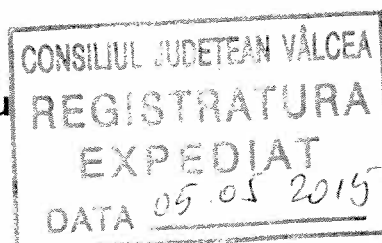 CONSILIUL JUDEȚEAN VÂLCEA
REGISTRATURA
EXPEDIAT
DATA 05.05 2015